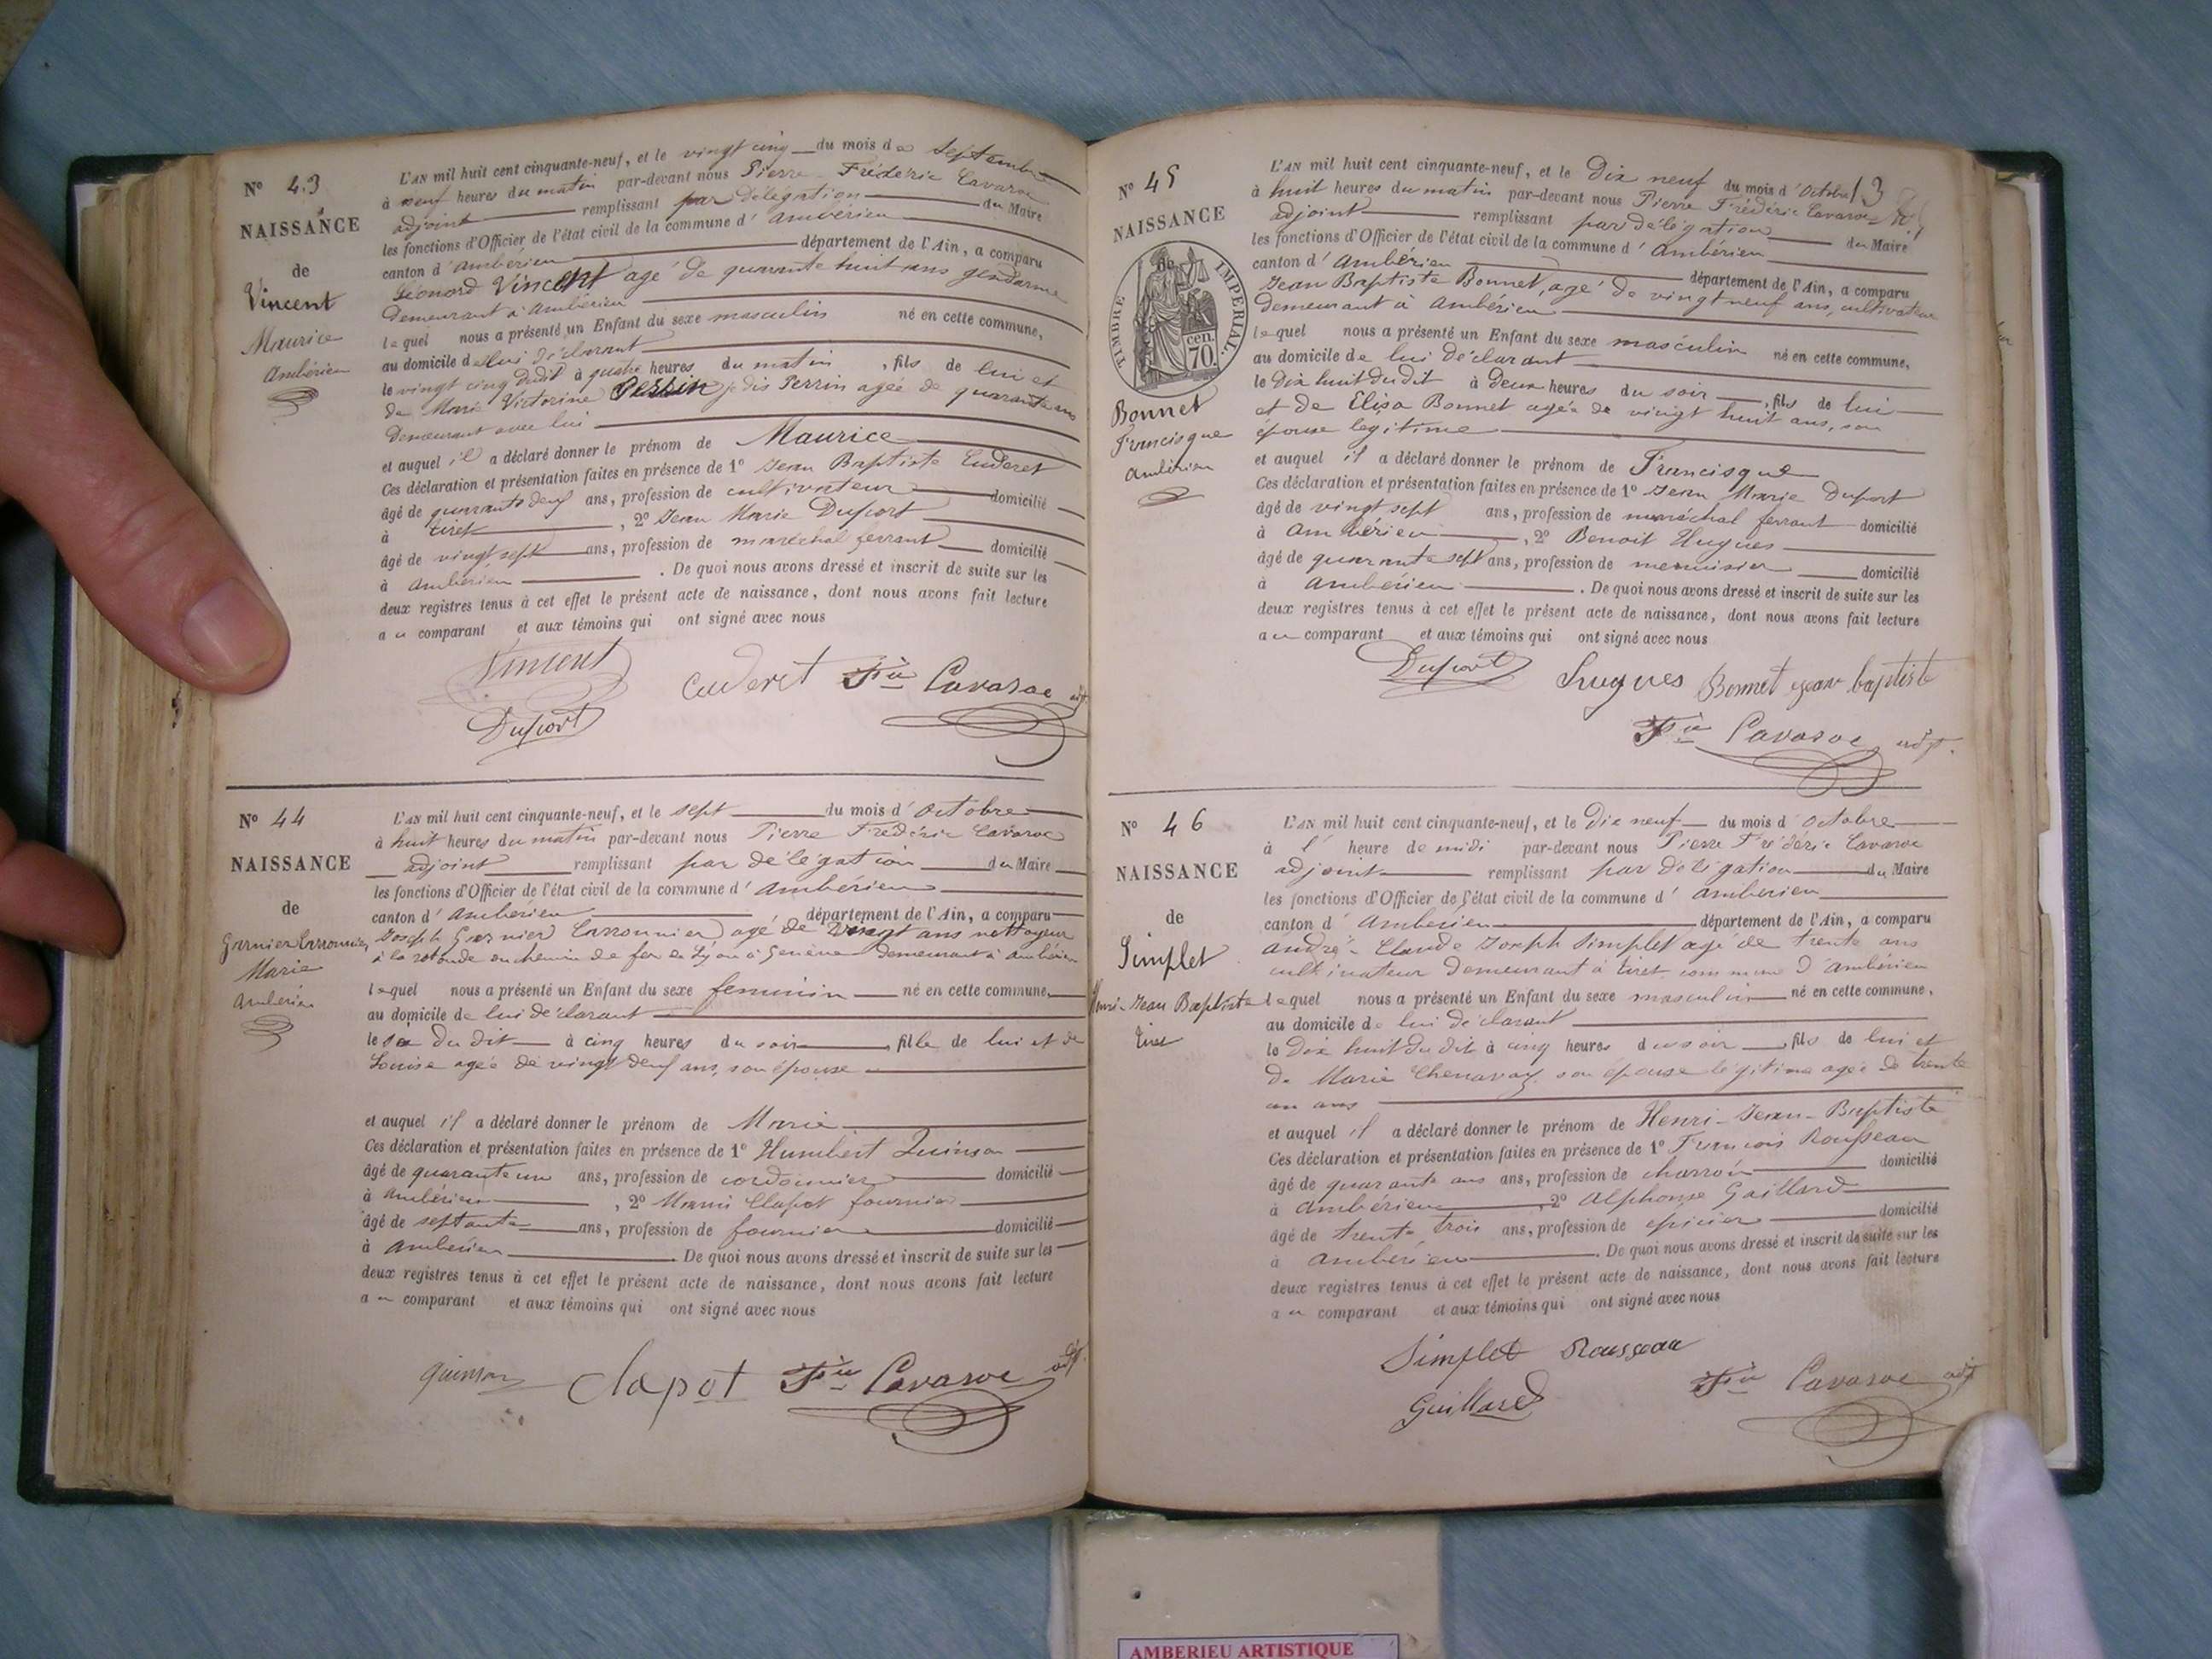 N° 43
NAISSANCE
de
Vincent
Maurice
Ambérieu
L'AN mil huit cent cinquante-neuf, et le vingt cinq du mois de Septembre
à neuf heures du matin par-devant nous Pierre Frédéric Cavaroc
adjoint remplissant par délégation du Maire
les fonctions d'Officier de l'état civil de la commune d' ambérieu
canton d' ambérieu département de l'Ain, a comparu
Léonard Vincent agé de quarante huit ans gendarme
demeurant à ambérieu
lequel nous a présenté un Enfant du sexe masculin né en cette commune,
au domicile de lui déclarant
le vingt cinq dudit à quatre heures du matin, fils de lui et
de Marie Victorine Perrin je dis Perrin agée de quarante ans
demeurant avec lui
et auquel il a déclaré donner le prénom de Maurice
Ces déclaration et présentation faites en présence de 1° Jean Baptiste Cuderet
âgé de quarante deux ans, profession de cultivateur domicilié
à tiret, 2° Jean Marie Duport
âgé de vingt sept ans, profession de maréchal ferrant domicilié
à ambérieu. De quoi nous avons dressé et inscrit de suite sur les
deux registres tenus à cet effet le présent acte de naissance, dont nous avons fait lecture
au comparant et aux témoins qui ont signé avec nous
Vincent Cuderet Fric Cavaroc adjt
Duport
N° 44
NAISSANCE
de
Garnier Carronnier
Marie
Ambérieu
L'AN mil huit cent cinquante-neuf, et le sept du mois d' Octobre
à huit heures du matin par-devant nous Pierre Frédéric Cavaroc
adjoint remplissant par délégation du Maire
les fonctions d'Officier de l'état civil de la commune d' ambérieu
canton d' ambérieu département de l'Ain, a comparu
Joseph Garnier Carronnier agé de vingt ans nettoyeur
à la rotonde du chemin de fer de Lyon à Genève demeurant à ambérieu
lequel nous a présenté un Enfant du sexe feminin né en cette commune,
au domicile de lui déclarant
le six du dit à cinq heures du soir, fille de lui et de
Louise agée de vingt deux ans, son épouse
et auquel il a déclaré donner le prénom de Marie
Ces déclaration et présentation faites en présence de 1° Humbert Quinson
âgé de quarante un ans, profession de cordonnier domicilié
à ambérieu, 2° Clapot fournier
âgé de septante ans, profession de fournier domicilié
à ambérieu. De quoi nous avons dressé et inscrit de suite sur les
deux registres tenus à cet effet le présent acte de naissance, dont nous avons fait lecture
au comparant et aux témoins qui ont signé avec nous
quinson Clapot Fric Cavaroc adjt
N° 45
NAISSANCE
de
TIMBRE IMPERIAL.
70 cen.
Bonnet
Francisque
ambérieu
L'AN mil huit cent cinquante-neuf, et le Dix neuf du mois d' Octobre 13
à huit heures du matin par-devant nous Pierre Frédéric Cavaroc
adjoint remplissant par délégation du Maire
les fonctions d'Officier de l'état civil de la commune d' ambérieu
canton d' ambérieu département de l'Ain, a comparu
Jean Baptiste Bonnet, agé de vingt neuf ans, cultivateur
demeurant à Ambérieu
lequel nous a présenté un Enfant du sexe masculin né en cette commune,
au domicile de lui déclarant
le dix huit du dit à deux heures du soir, fils de lui
et de Elisa Bonnet agée de vingt huit ans, son
épouse legitime
et auquel il a déclaré donner le prénom de Francisque
Ces déclaration et présentation faites en présence de 1° Jean Marie Duport
âgé de vingt sept ans, profession de maréchal ferrant domicilié
à ambérieu, 2° Benoit Hugues
âgé de quarante sept ans, profession de menuisier domicilié
à ambérieu. De quoi nous avons dressé et inscrit de suite sur les
deux registres tenus à cet effet le présent acte de naissance, dont nous avons fait lecture
au comparant et aux témoins qui ont signé avec nous
Duport hugues Bonnet jean baptiste
Fric Cavaroc adjt.
N° 46
NAISSANCE
de
Simplet
Henri-Jean Baptiste
tiret
L'AN mil huit cent cinquante-neuf, et le Dix neuf du mois d' Octobre
à l' heure de midi par-devant nous Pierre Frédéric Cavaroc
adjoint remplissant par délégation du Maire
les fonctions d'Officier de l'état civil de la commune d' ambérieu
canton d' ambérieu département de l'Ain, a comparu
André-Claude Joseph Simplet agé de trente ans
cultivateur demeurant à tiret commune d'ambérieu
lequel nous a présenté un Enfant du sexe masculin né en cette commune,
au domicile de lui déclarant
le dix huit du dit à cinq heures du soir, fils de lui et
de Marie Chenavaz son épouse légitime agée de trente
un ans
et auquel il a déclaré donner le prénom de Henri-Jean-Baptiste
Ces déclaration et présentation faites en présence de 1° François Rousseau
âgé de quarante ans ans, profession de charron domicilié
à ambérieu, 2° Alphonse Gaillard
âgé de trente trois ans, profession de epicier domicilié
à ambérieu. De quoi nous avons dressé et inscrit de suite sur les
deux registres tenus à cet effet le présent acte de naissance, dont nous avons fait lecture
au comparant et aux témoins qui ont signé avec nous
Simplet Rousseau
Gaillard Fric Cavaroc adjt
AMBERIEU ARTISTIQUE